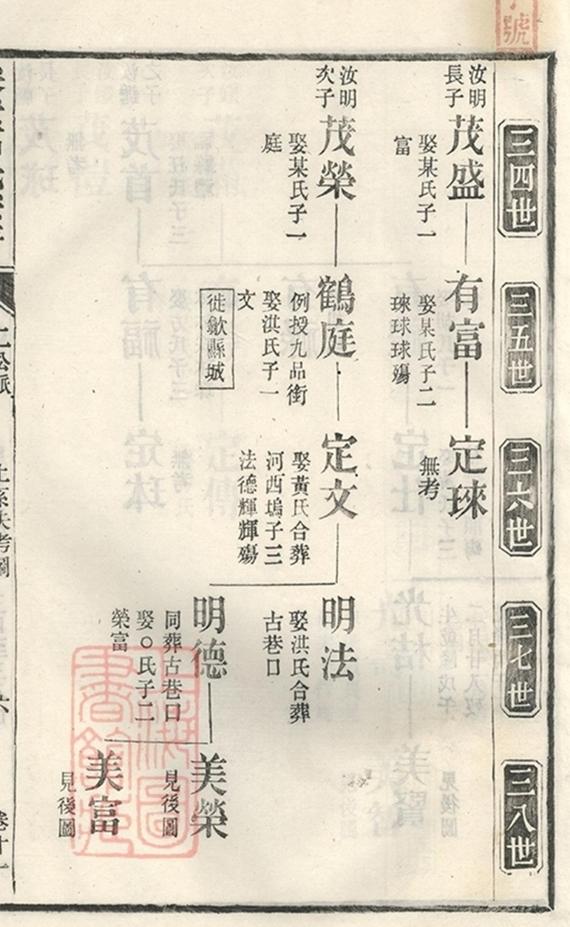 號
三四世
三五世
三六世
三七世
三八世
汝明
長子
茂盛
娶某氏子一
富
有富
娶某氏子二
琜球球殤
定琜
無考
汝明
次子
茂榮
娶某氏子一
庭
鶴庭
例授九品銜
娶洪氏子一
文
徙歙縣城
定文
娶黃氏合葬
河西塢子三
法德輝輝殤
明法
娶洪氏合葬
古巷口
明德
同葬古巷口
娶○氏子二
榮富
美榮
見後圖
美富
見後圖